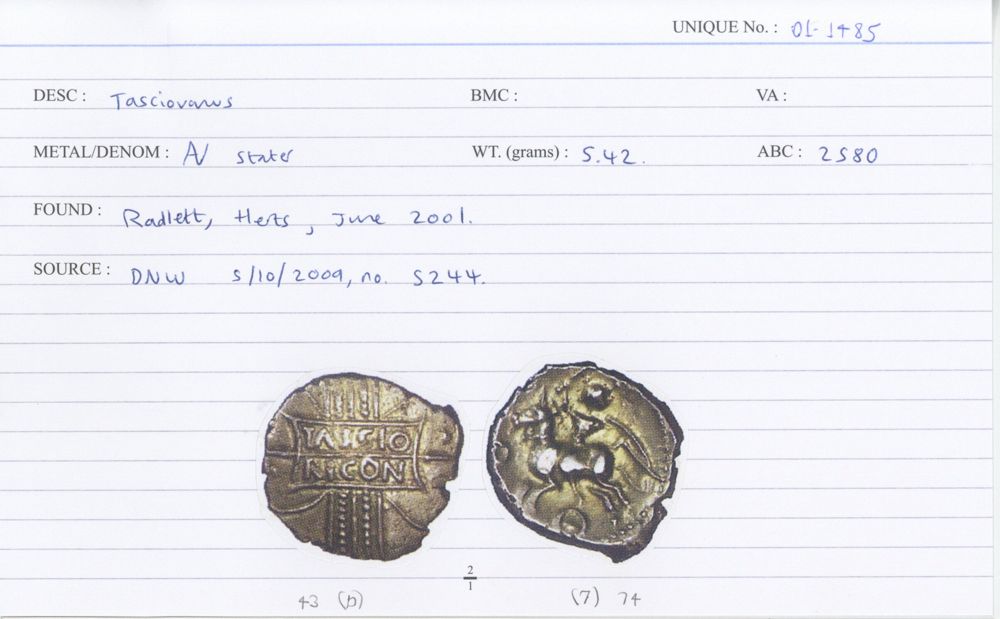 UNIQUE No. : 01-1485
DESC : Tasciovanus BMC : VA :
METAL/DENOM : AV stater WT. (grams) : 5.42. ABC : 2580
FOUND : Radlett, Herts, June 2001.
SOURCE : DNW 5/10/2009, no. 5244.
TASCIO
RICON
2
1
43 (b) (7) 74